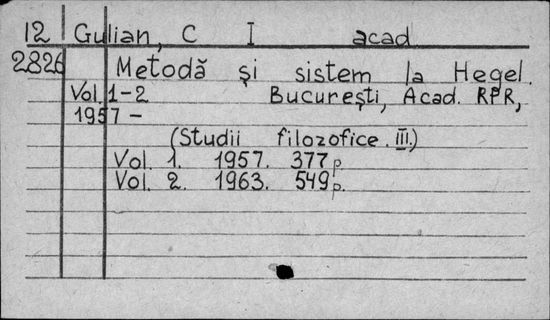 12 Gulian, C I acad
2826 Metodă și sistem la Hegel.
Vol. 1-2 București, Acad. RPR,
1957 -
(Studii filozofice. III.)
Vol. 1. 1957. 377 p
Vol. 2. 1963. 549 p.